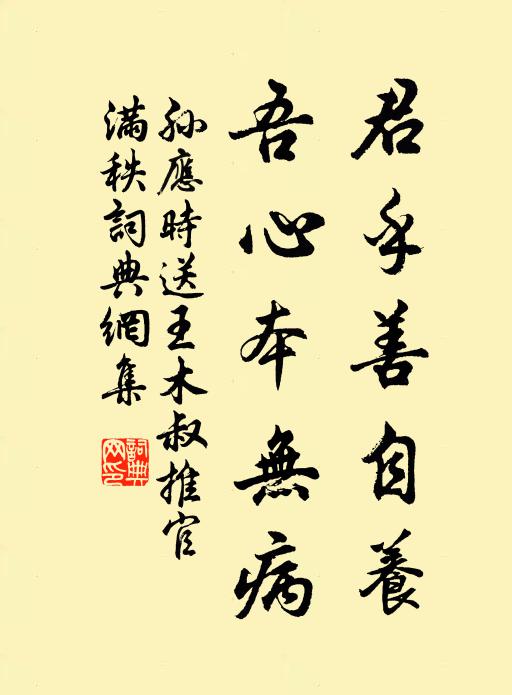 君乎善自養
吾心本無病
孫應時送王木叔推官
滿秩詞典網集
詞典
網印